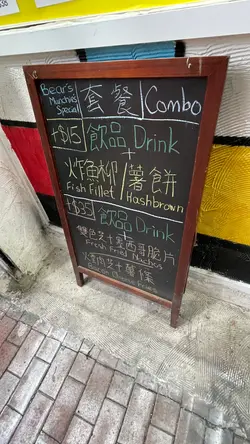 Bear's Munchies Special 套餐/Combo
+$15 飲品 Drink
+
炸魚柳/薯餅
Fish Fillet Hashbrown
+$35 飲品 Drink
+
雙色芝士墨西哥脆片
Fresh Fried Nachos
芝士薯條
Fries